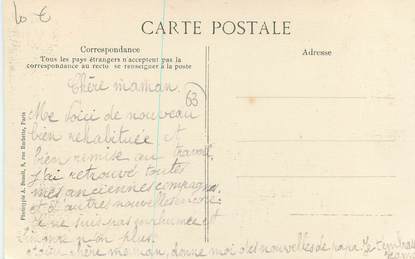 10 €
CARTE POSTALE
Correspondance
Tous les pays étrangers n'acceptent pas la
correspondance au recto se renseigner à la poste
Adresse
63
Phototypie A. Benoit, 8, rue Rochette, Paris
Chère maman.
Me voici de nouveau
bien rehabituée et
bien remise au travail
J'ai retrouvé toutes
mes anciennes compagnes
et d'autres nouvelles encore.
Je ne suis pas enrhumée et
non plus.
chère maman, donne moi des nouvelles de papa. Je